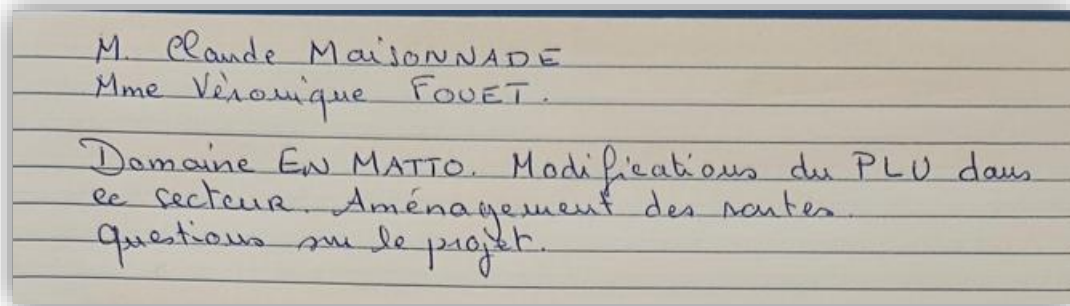 M. Claude MaisONNADE
Mme Véronique FOUET.
Domaine EN MATTO. Modifications du PLU dans
ce secteur. Aménagement des routes.
Questions sur le projet.